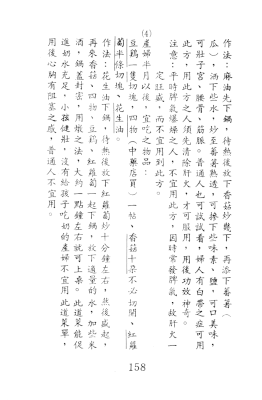 作法：麻油先下鍋，待熱後放下香菇炒幾下，再添下蕃薯（
瓜），洒下些水，炒至蕃薯熟透，可摻下些味素、鹽，可口美味，
可壯子宮、腰骨、筋脈。普通人也可試試看，婦人有白帶之症可用
此方，用此方之人須先清除肝火，才可服用，服用後功效神奇。
注意：平時脾氣爆燥之人，不宜用此方，因時常發脾氣，故肝火一
定旺盛，而不宜用到此方。
(4)
產婦半月以後，宜吃之物品：
豆鷄一隻切塊，四物（中藥店買）一帖、香菇十朵不必切開、紅羅
蔔半條切塊、花生油。
作法：花生油下鍋，待熱後放下紅蘿蔔炒十分鐘左右，然後盛起，
再來香菇、四物、豆鷄、紅蘿蔔一起下鍋，放下適量的水，加些米
酒，鍋蓋封密，用燉之法，大約一點鐘左右就可上桌。此道菜能促
進奶水充足，小孩健壯，沒有給孩子吃奶的產婦不宜用此道菜單，
用後心胸有阻塞之感，普通人不宜用。
158